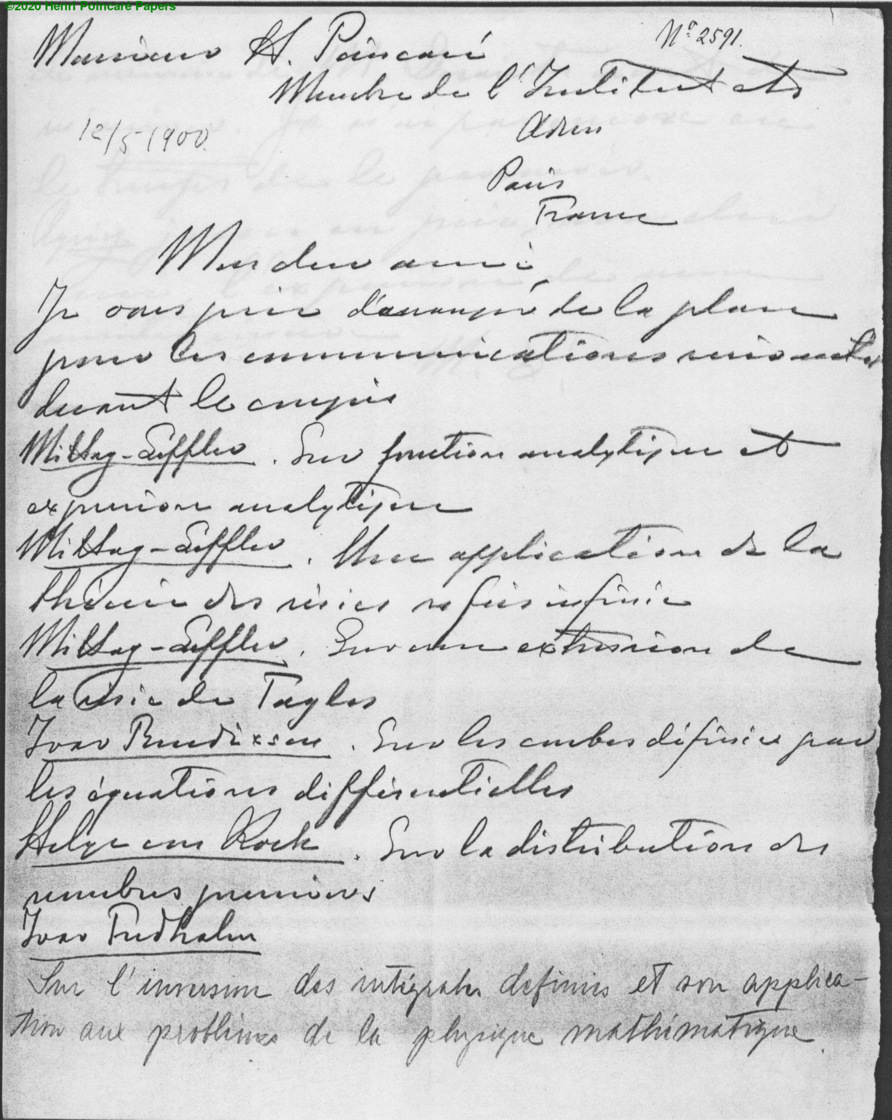 ©2020 Henri Poincaré Papers
No 2591.
Monsieur H. Poincaré
Membre de l'Institut etc
12/5 1900
Paris
France
Mon cher ami,
Je vous prie d'arranger de la place
pour les communications suivantes
devant le congrès
Mittag-Leffler. Sur fonction analytique et
expression analytique
Mittag-Leffler. Une application de la
théorie des séries infinie
Mittag-Leffler. Sur une extension de
la série de Taylor
Ivar Bendixson. Sur les courbes définies par
les équations différentielles
Helge von Koch. Sur la distribution des
nombres premiers
Ivar Fredholm
Sur l'inversion des intégrales définies et son applica-
tion aux problèmes de la physique mathématique.